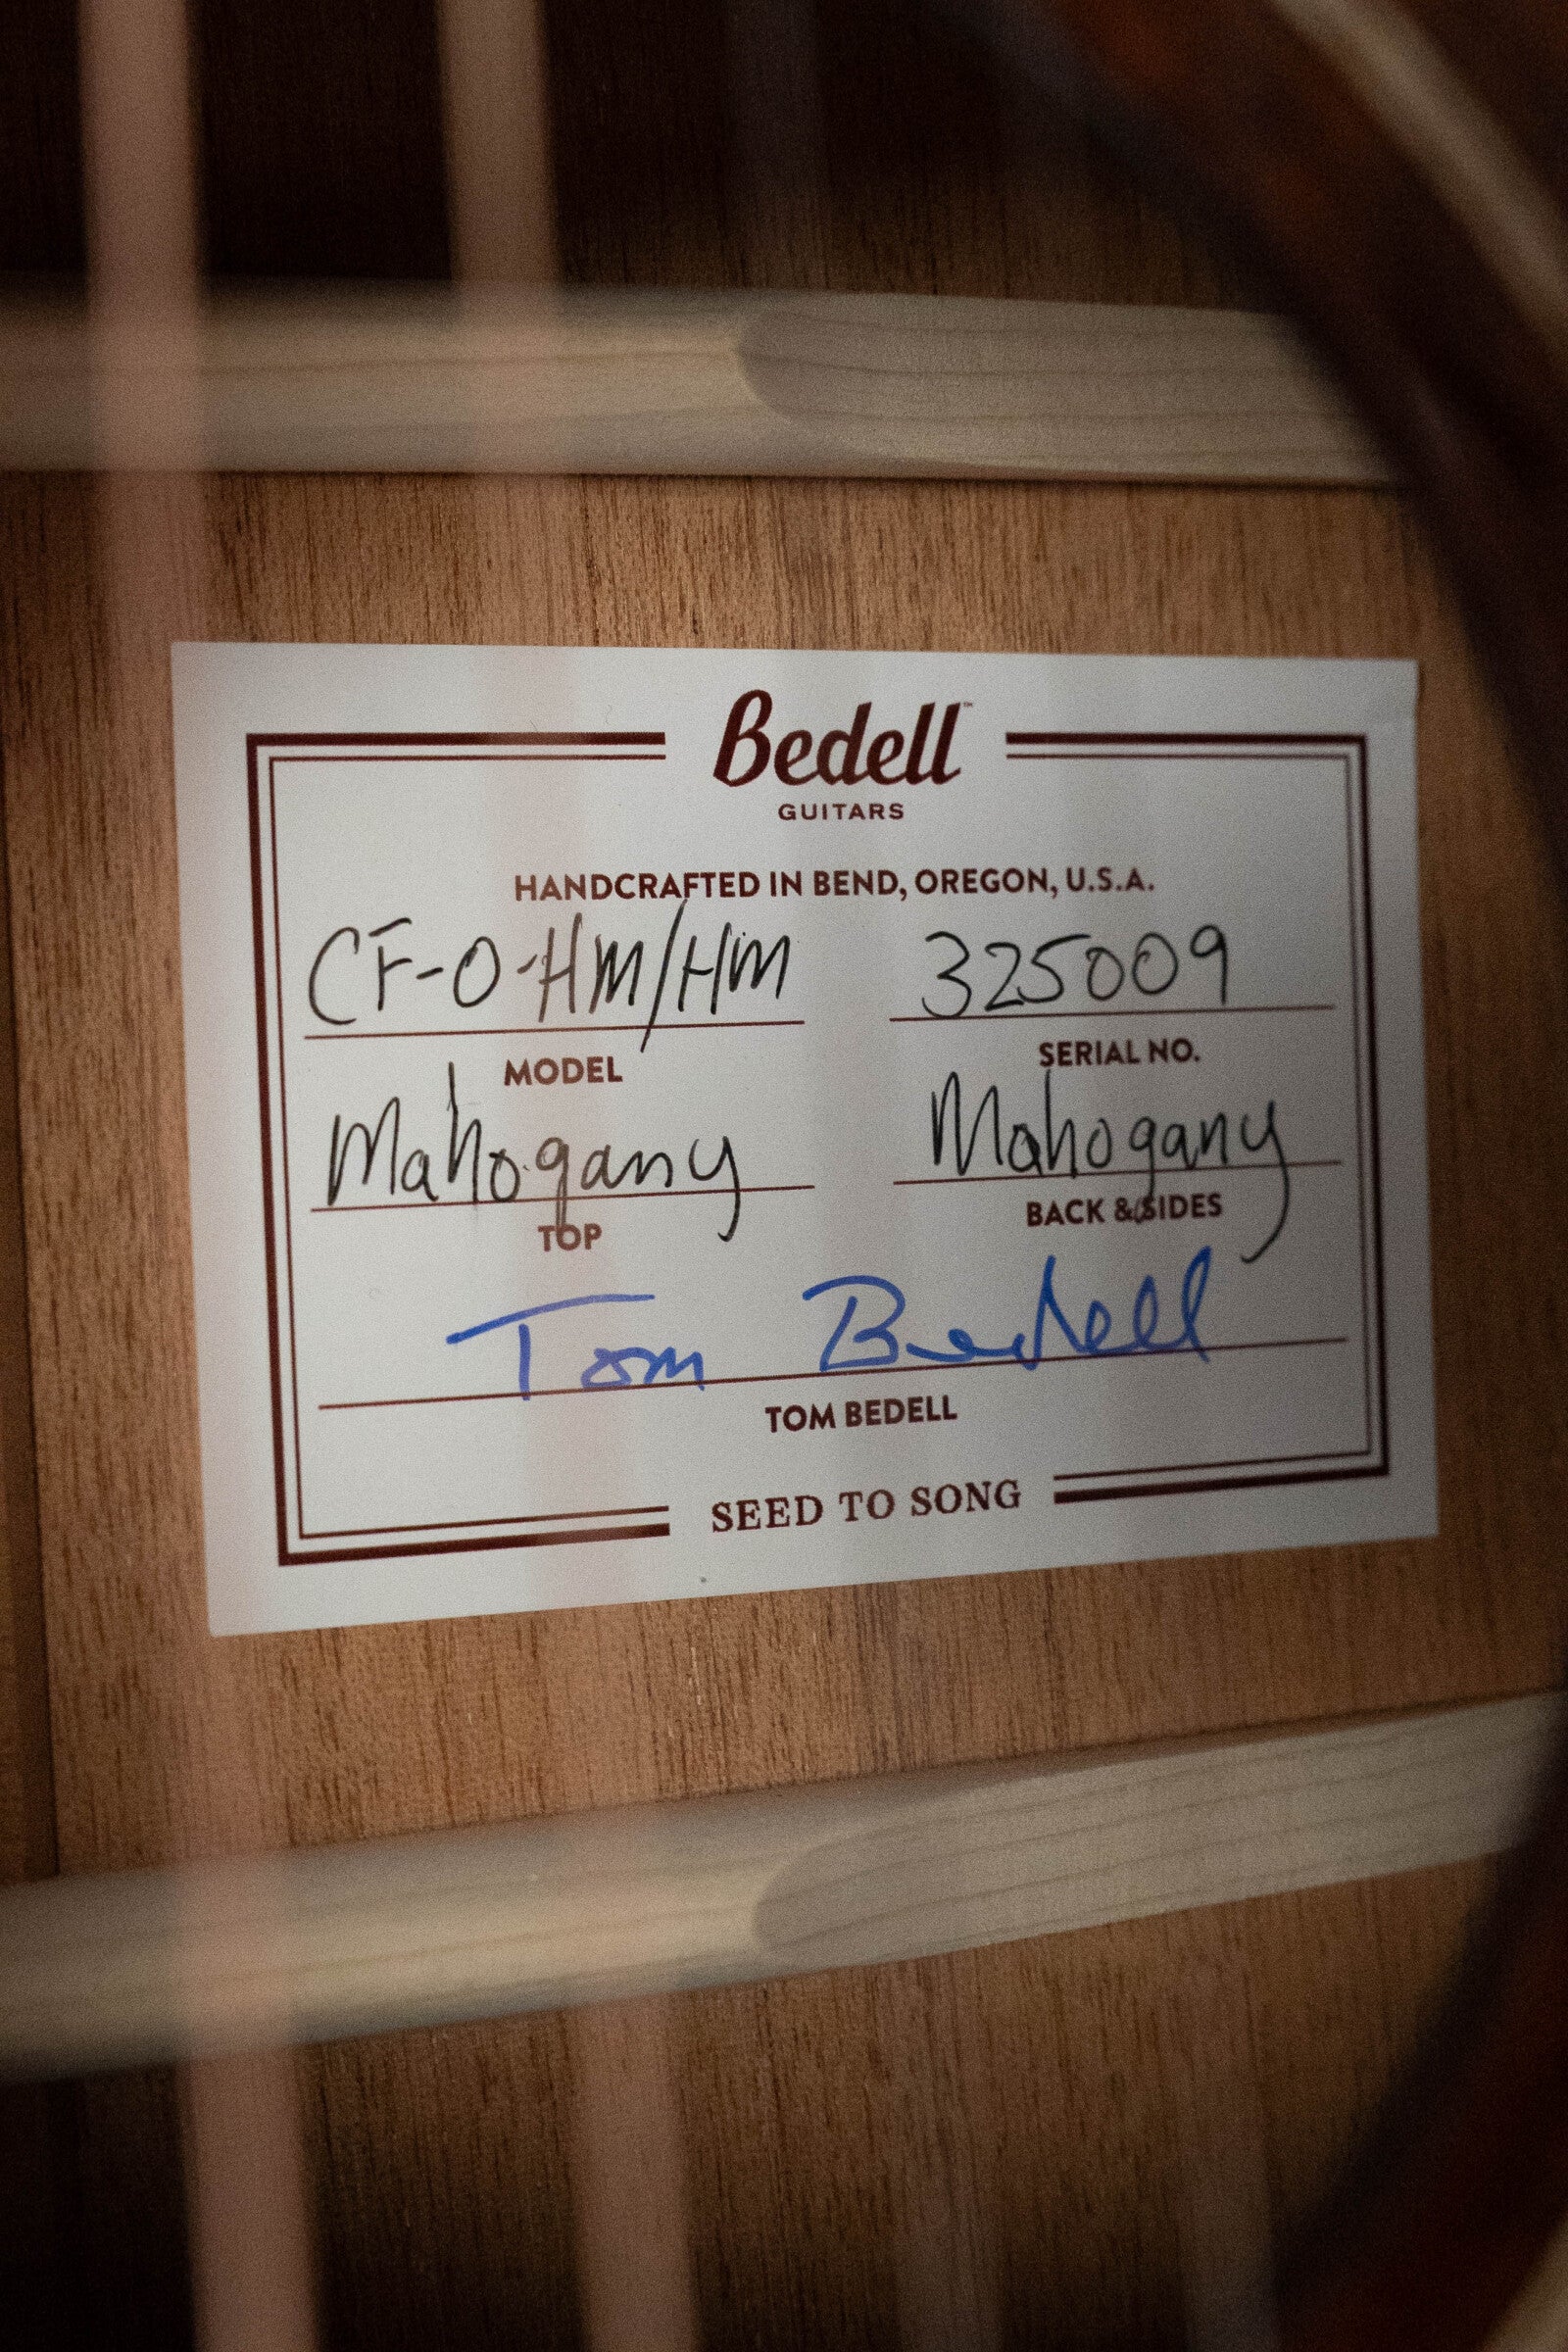 Bedell™
GUITARS
HANDCRAFTED IN BEND, OREGON, U.S.A.
CF-O-HM/HM 325009
MODEL SERIAL NO.
Mahogany Mahogany
TOP BACK & SIDES
Tom Bedell
TOM BEDELL
SEED TO SONG